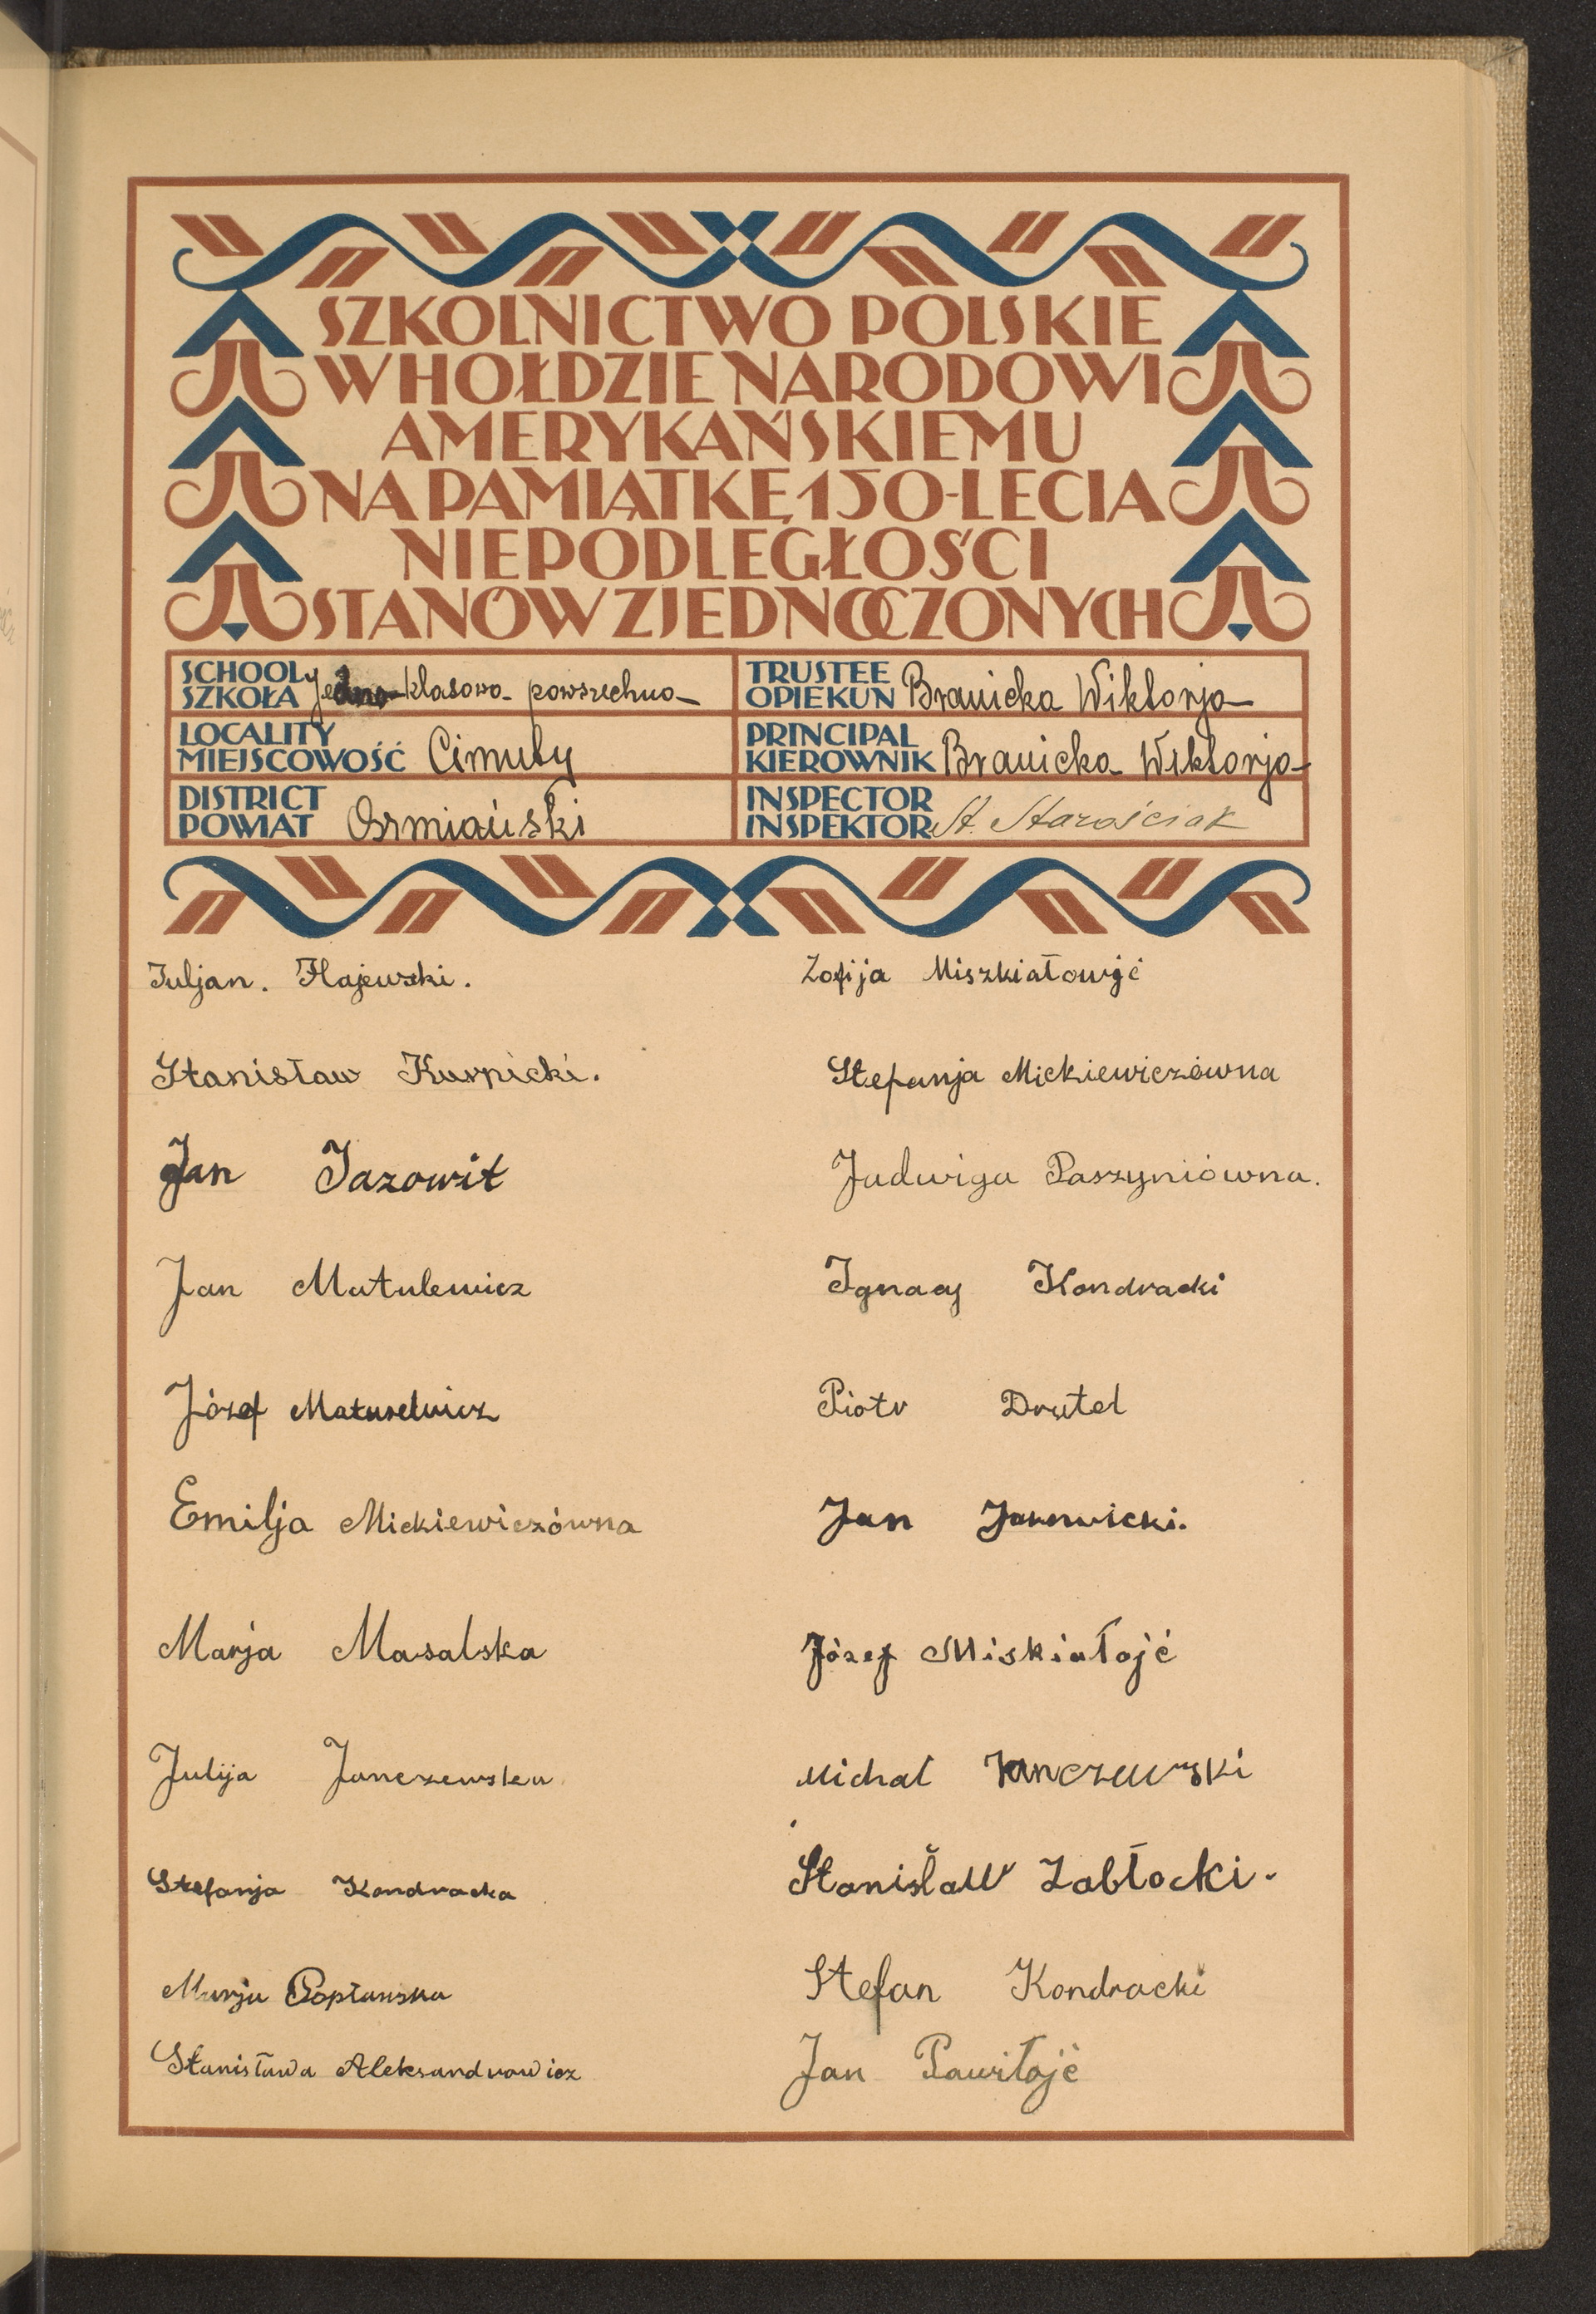 SZKOLNICTWO POLSKIE
W HOŁDZIE NARODOWI
AMERYKAŃSKIEMU
NA PAMIĄTKĘ 150-LECIA
NIEPODLEGŁOŚCI
STANÓW ZJEDNOCZONYCH
SCHOOL
SZKOŁA Jedno-klasowa powszechna
TRUSTEE
OPIEKUN Branicka Wiktorja
LOCALITY
MIEJSCOWOŚĆ Cimuty
PRINCIPAL
KIEROWNIK Branicka Wiktorja
DISTRICT
POWIAT Oszmiański
INSPECTOR
INSPEKTOR St. Starościak
Juljan. Hajewski.
Stanisław Kurnicki.
Jan Jazowit
Jan Matulewicz
Józef Matusewicz
Emilja Mickiewiczówna
Marja Masalska
Julija Janczewska
Stefanja Kondracka
Marja Popławska
Stanisława Aleksandrowicz
Zofija Miszkiałowjć
Stefanja Mickiewiczówna
Jadwiga Paszyniówna.
Ignacy Kondracki
Piotr Drutel
Jan
Józef Miskiałojć
Michał Janczewski
Stanisław Zabłocki.
Stefan Kondracki
Jan Pawiłojć